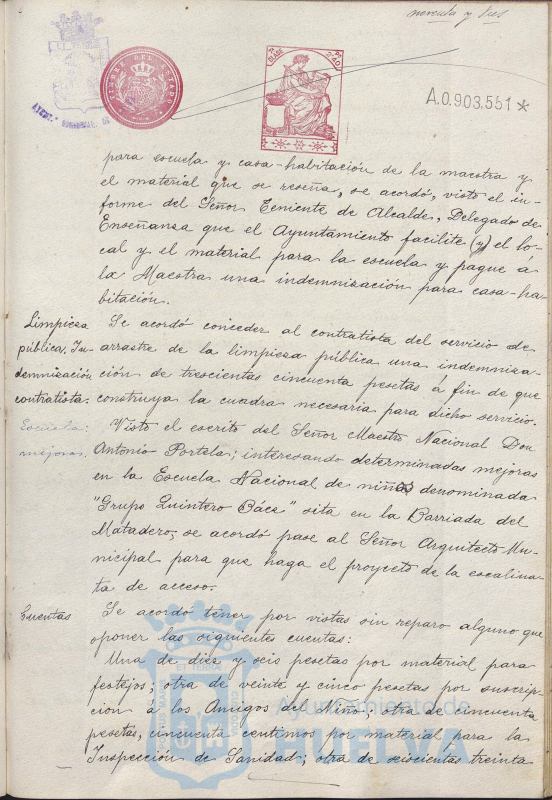 noventa y tres
TIMBRE DEL ESTADO
CLASE
A.0.903.551*
para escuela y casa-habitación de la maestra y
el material que se reseña, se acordó, visto el in-
forme del Señor Teniente de Alcalde, Delegado de
Enseñansa que el Ayuntamiento facilite (y) el lo-
cal y el material para la escuela y pague á
la Maestra una indemnisación para casa-ha-
bitación.
Limpiesa pública. In-demnisación contratista.
Se acordó conceder al contratista del servicio de
arrastre de la limpiesa pública una indemnisa-
ción de trescientas cincuenta pesetas á fin de que
construya la cuadra necesaria para dicho servicio.
Escuela: mejoras.
Visto el escrito del Señor Maestro Nacional Don
Antonio Portela; interesando determinadas mejoras
en la Escuela Nacional de niños denominada
"Grupo Quintero Báez" sita en la Barriada del
Matadero; se acordó pase al Señor Arquitecto Mu-
nicipal para que haga el proyecto de la escalina-
ta de acceso.
Cuentas
Se acordó tener por vistas sin reparo alguno que
oponer las siguientes cuentas:
Una de diez y seis pesetas por material para
festejos; otra de veinte y cinco pesetas por suscrip-
ción á los Amigos del Niño; otra de cincuenta
pesetas, cincuenta centimos por material para la
Inspección de Sanidad; otra de seiscientas treinta
Ayuntamiento de
HUELVA